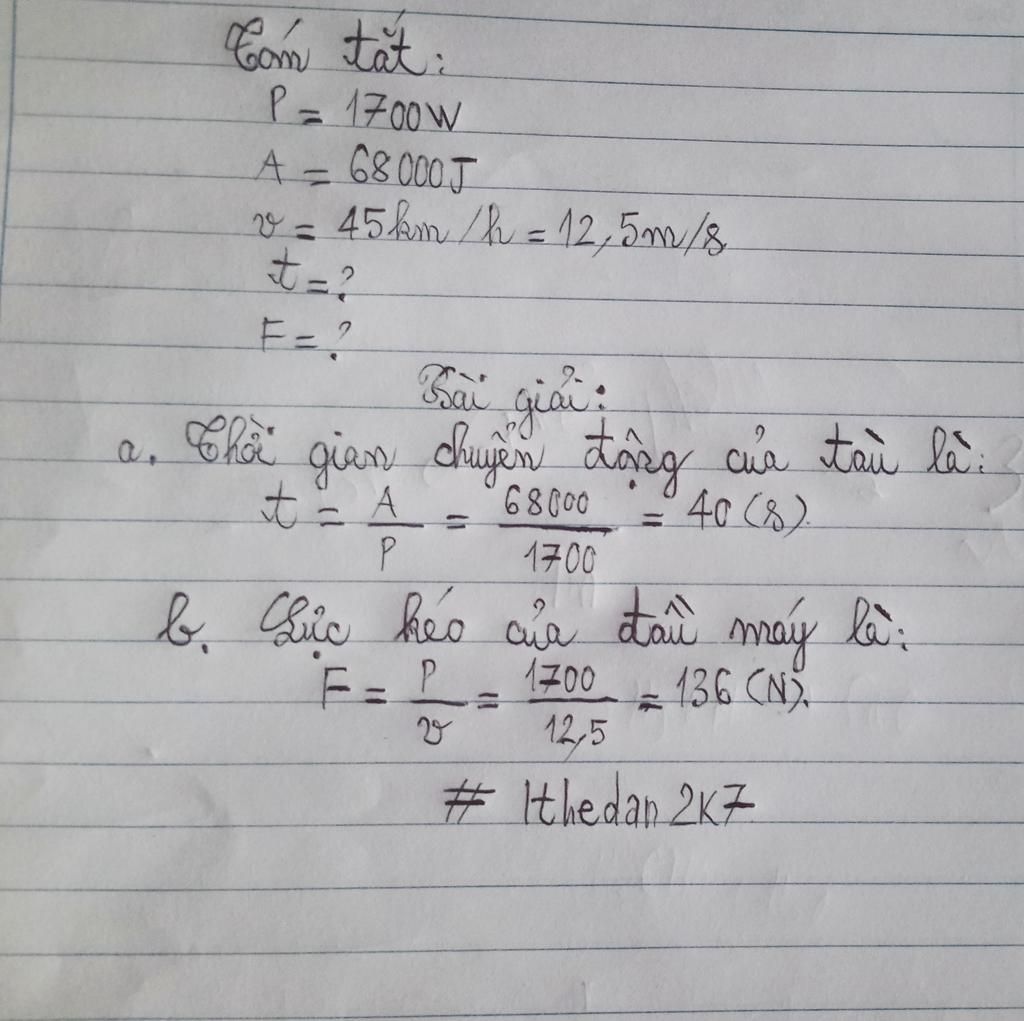 Tóm tắt:
P = 1700W
A = 68000J
v = 45km/h = 12,5m/s
t = ?
F = ?
Bài giải:
a. Thời gian chuyển động của tàu là:
t = A/P = 68000/1700 = 40 (s).
b. Lực kéo của đầu máy là:
F = P/v = 1700/12,5 = 136 (N).
# 1thedan2k7